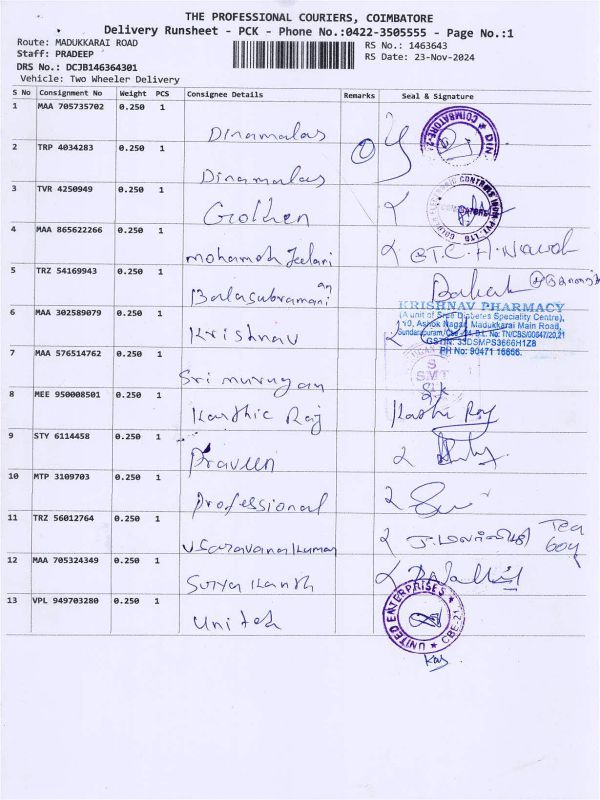 THE PROFESSIONAL COURIERS, COIMBATORE
Delivery Runsheet - PCK - Phone No.:0422-3505555 - Page No.:1
Route: MADUKKARAI ROAD
RS No.: 1463643
Staff: PRADEEP
RS Date: 23-Nov-2024
DRS No.: DCJB146364301
Vehicle: Two Wheeler Delivery
S No Consignment No Weight PCS Consignee Details Remarks Seal & Signature
1 MAA 705735702 0.250 1 Dinamalas
COIMBATORE-2 ★ DIN
2 TRP 4034283 0.250 1 Dinamalas
3 TVR 4250949 0.250 1 Golden
4 MAA 865622266 0.250 1 mohamah Jeelani
5 TRZ 54169943 0.250 1 Balasubramanian
6 MAA 302589079 0.250 1 Krishnav
KRISHNAV PHARMACY
(A unit of Sree Diabetes Speciality Centre),
10, Ashok Nagar, Madukkarai Main Road,
Sundarapuram, Cbe-24. D.L. No: TN/CBS/00647/20,21
GSTIN: 33DSMPS3666H1Z8
PH No: 90471 16666.
7 MAA 576514762 0.250 1 Sri murugan
8 MEE 950008501 0.250 1 Karthic Raj
9 STY 6114458 0.250 1 Praveen
10 MTP 3109703 0.250 1 Professional
11 TRZ 56012764 0.250 1 Vsaravanakumar
Tea
boy
12 MAA 705324349 0.250 1 Surya Kanth
13 VPL 949703280 0.250 1 United
UNITED ENTERPRISES ★ CBE-21 ★